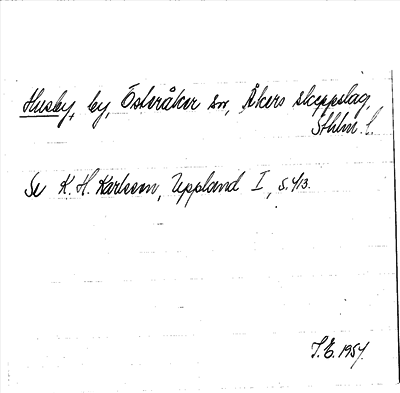 Husby, by, Österåker sn, Åkers skeppslag,
Sthlm. l.
Se K. H. Karlsson, Uppland I, s. 413.
S.E. 1954.